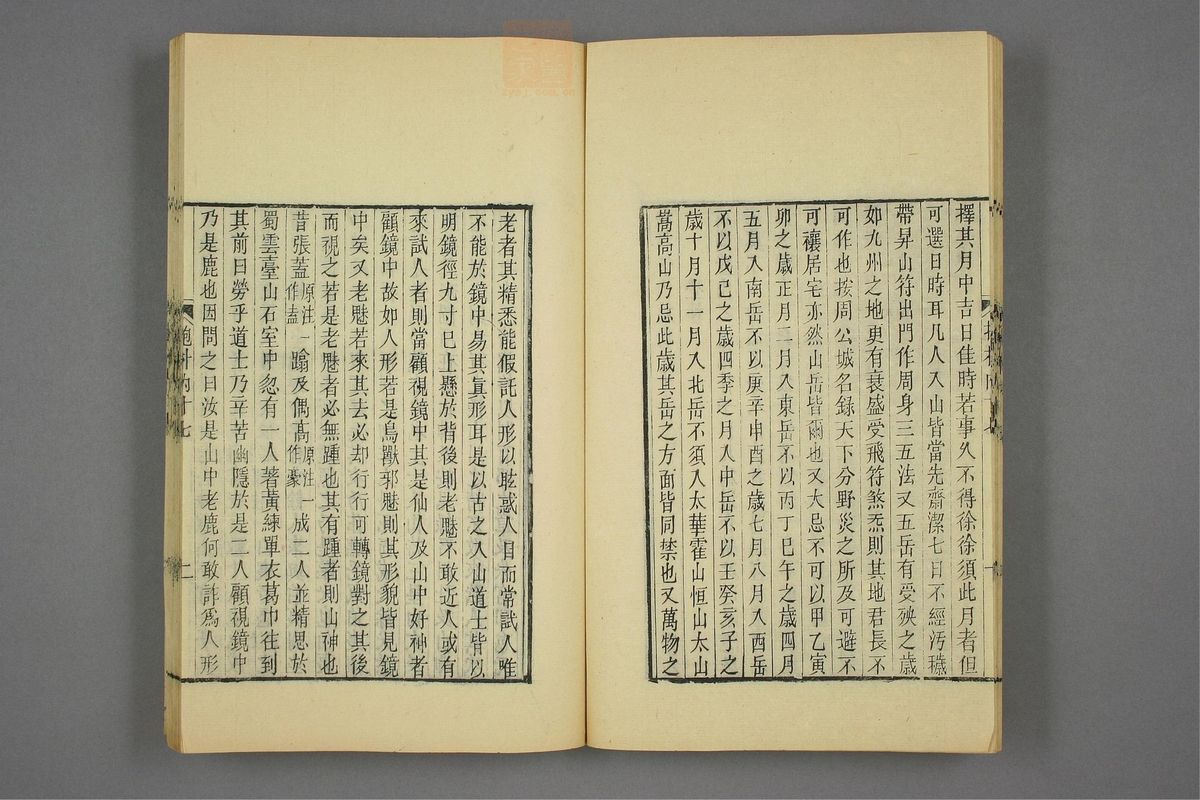 擇其月中吉日佳時若事久不得徐徐須此月者但
可選日時耳凡人入山皆當先齋潔七日不經汚穢
帶昇山符出門作周身三五法又五岳有受殃之歲
如九州之地更有衰盛受飛符煞炁則其地君長不
可作也按周公城名錄天下分野災之所及可避不
可禳居宅亦然山岳皆爾也又大忌不可以甲乙寅
卯之歲正月二月入東岳不以丙丁巳午之歲四月
五月入南岳不以庚辛申酉之歲七月八月入西岳
不以戊己之歲四季之月入中岳不以壬癸亥子之
歲十月十一月入北岳不須入太華霍山恒山太山
嵩高山乃忌此歲其岳之方面皆同禁也又萬物之
老者其精悉能假託人形以眩惑人目而常試人唯
不能於鏡中易其眞形耳是以古之入山道士皆以
明鏡徑九寸已上懸於背後則老魅不敢近人或有
來試人者則當顧視鏡中其是仙人及山中好神者
顧鏡中故如人形若是鳥獸邪魅則其形貌皆見鏡
中矣又老魅若來其去必却行行可轉鏡對之其後
而視之若是老魅者必無踵也其有踵者則山神也
昔張蓋原注一作盍蹹及偶高原注一作豪成二人並精思於
蜀雲臺山石室中忽有一人著黃練單衣葛巾往到
其前曰勞乎道士乃辛苦幽隱於是二人顧視鏡中
乃是鹿也因問之曰汝是山中老鹿何敢詐爲人形
抱朴內十七
二